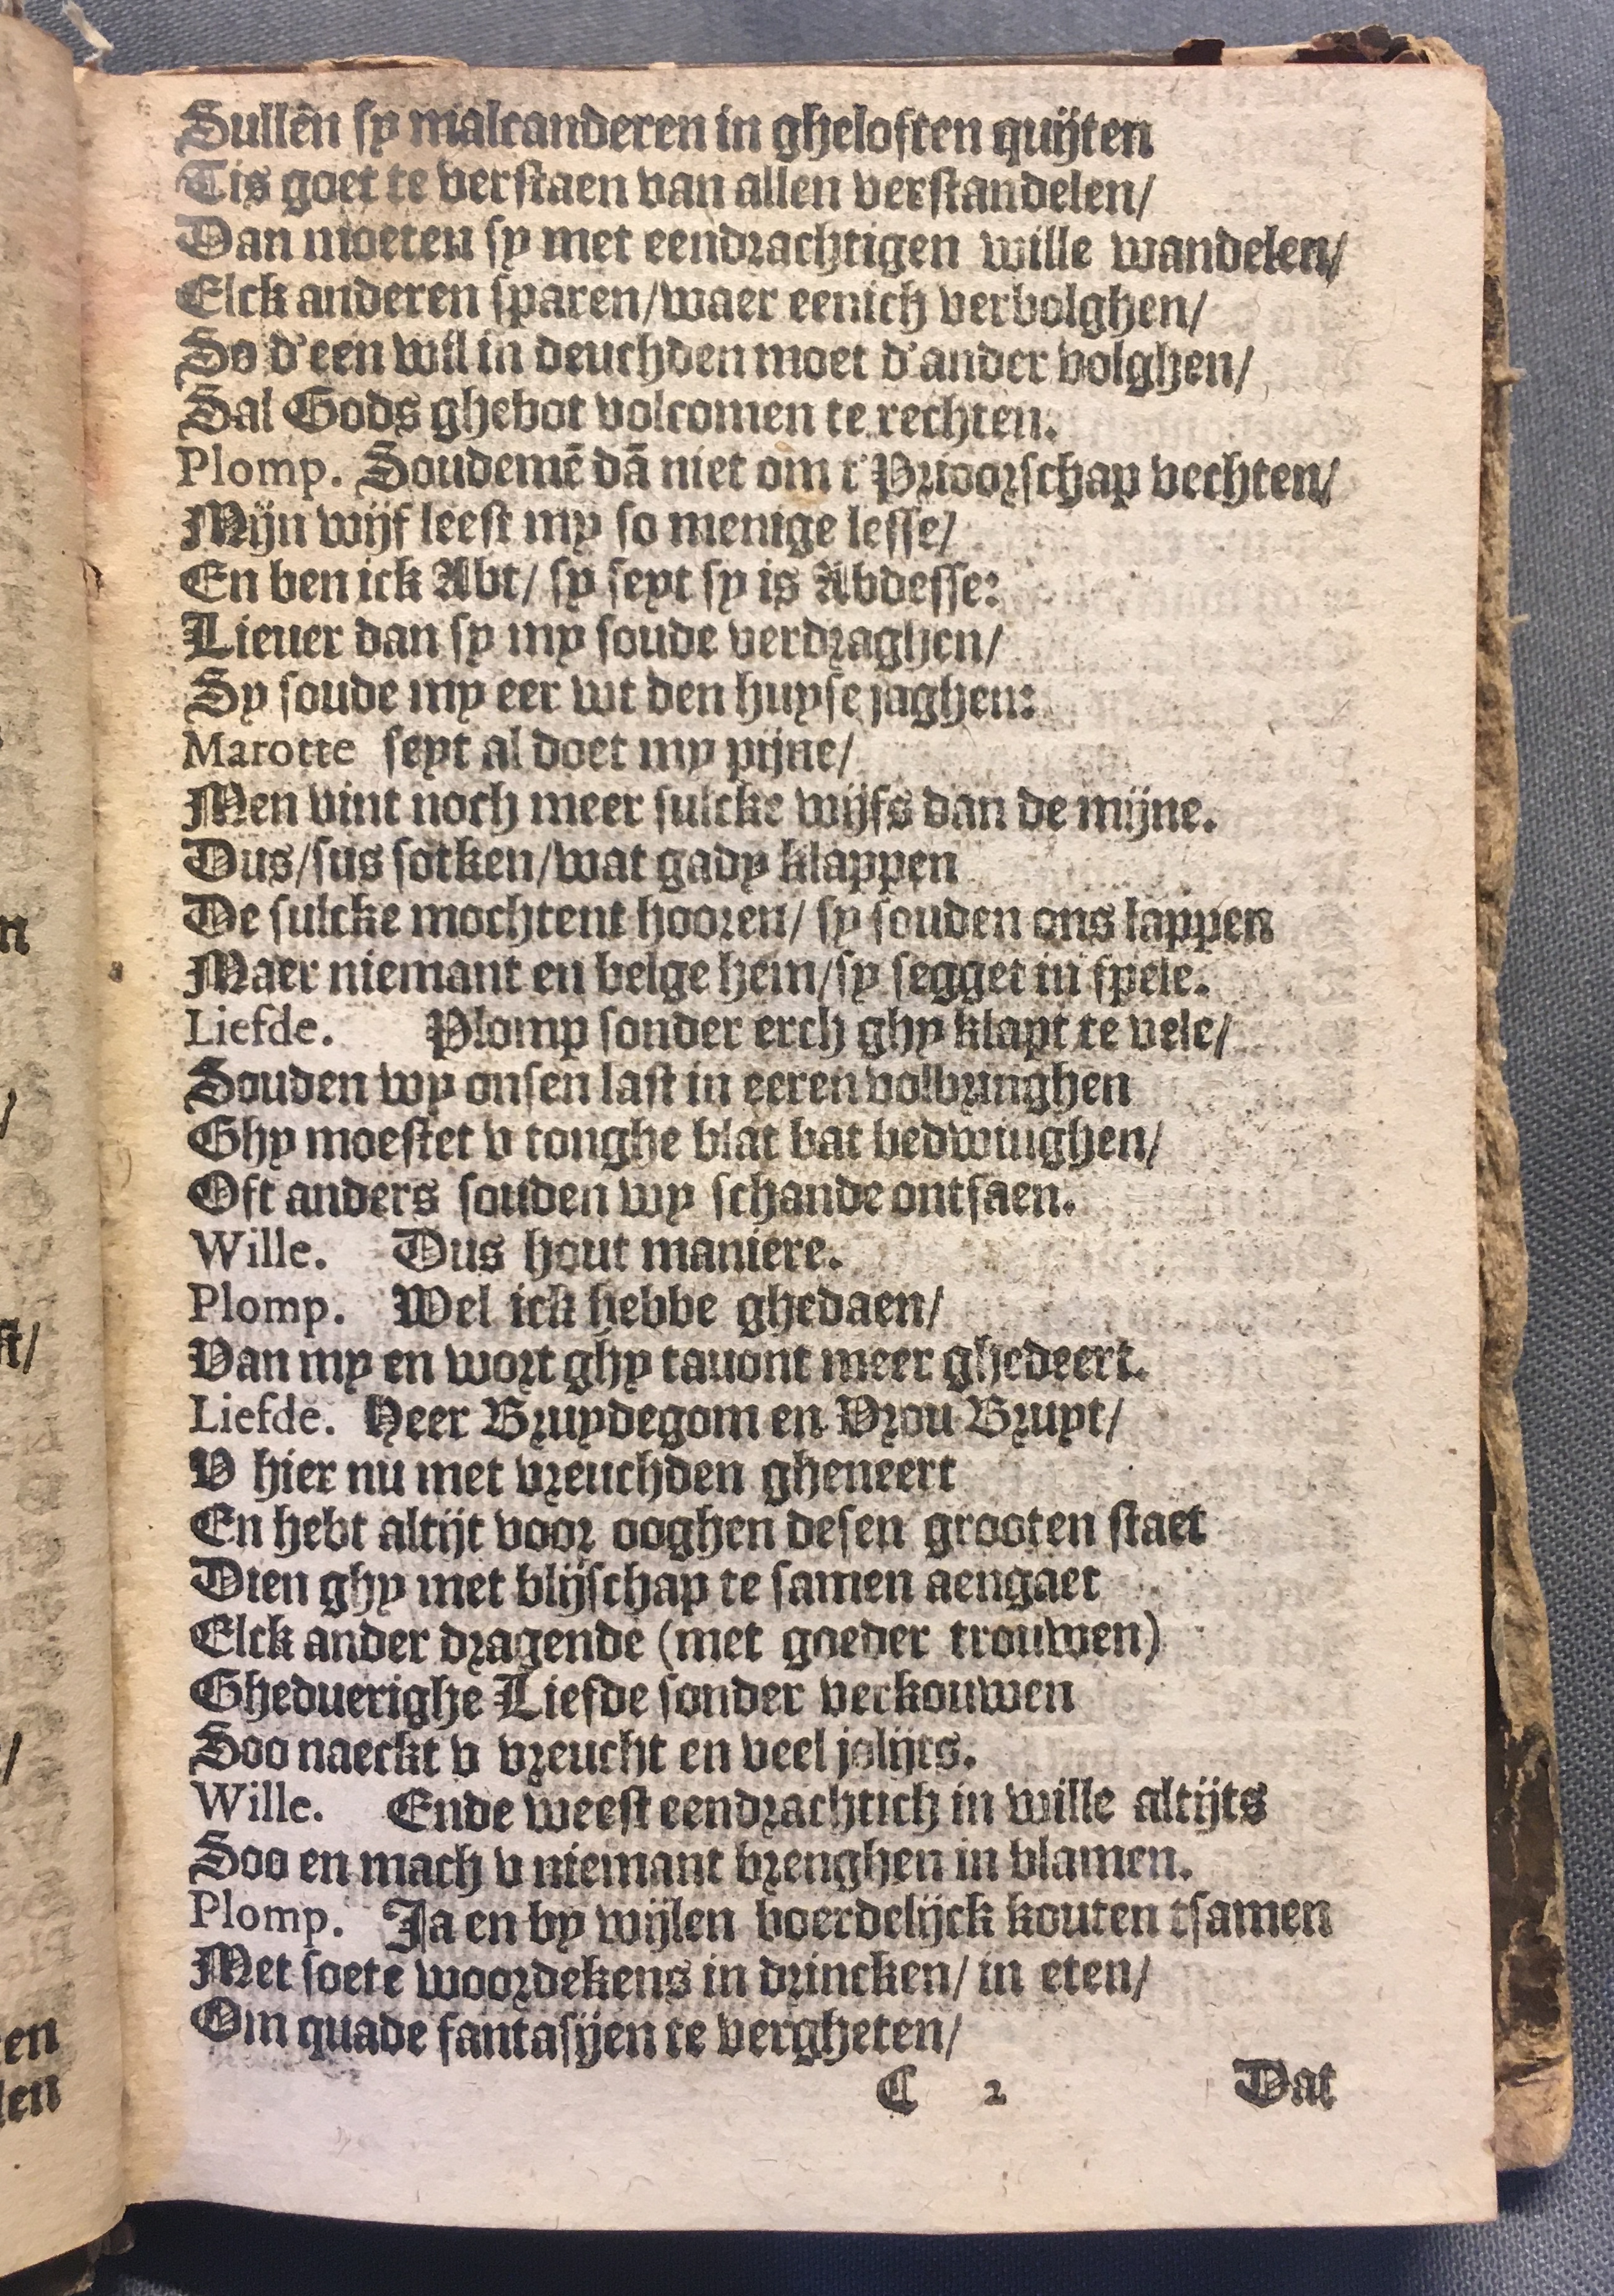 Sullēn sy malcanderen in gheloften quijten
Tis goet te verstaen van allen verstandelen/
Dan moeten sy met eendrachtigen wille wandelen/
Elck anderen sparen/waer eenich verbolghen/
So d'een wil in deuchden moet d'ander volghen/
Sal Gods ghebot volcomen te rechten.
Plomp. Soudemē dā niet om t'Prioorschap vechten/
Mijn wijf leest my so menige lesse/
En ben ick Abt/ sy seyt sy is Abdesse:
Lieuer dan sy my soude verdraghen/
Sy soude my eer wt den huyse jaghen:
Marotte seyt al doet my pijne/
Men vint noch meer sulcke wijfs dan de mijne.
Dus/sus sotken/wat gady klappen
De sulcke mochtent hooren/ sy souden ons lappen
Maer niemant en belge hem/sy segget in spele.
Liefde. Plomp sonder erch ghy klapt te vele/
Souden wy onsen last in eeren volbringhen
Ghy moestet v tonghe blat bat bedwinghen/
Oft anders souden wy schande ontfaen.
Wille. Dus hout maniere.
Plomp. Wel ick hebbe ghedaen/
Van my en wort ghy tauont meer ghedeert.
Liefde. Heer Bruydegom en Vrou Bruyt/
V hier nu met vreuchden gheneert
En hebt altijt voor ooghen desen grooten staet
Dien ghy met blijschap te samen aengaet
Elck ander dragende (met goeder trouwen)
Gheduerighe Liefde sonder verkouwen
Soo naeckt v vreucht en veel jolijts.
Wille. Ende weest eendrachtich in wille altijts
Soo en mach v niemant brenghen in blamen.
Plomp. Ja en by wijlen boerdelijck kouten tsamen
Met soete woordekens in drincken/ in eten/
Om quade fantasijen te vergheten/
C 2 Dat